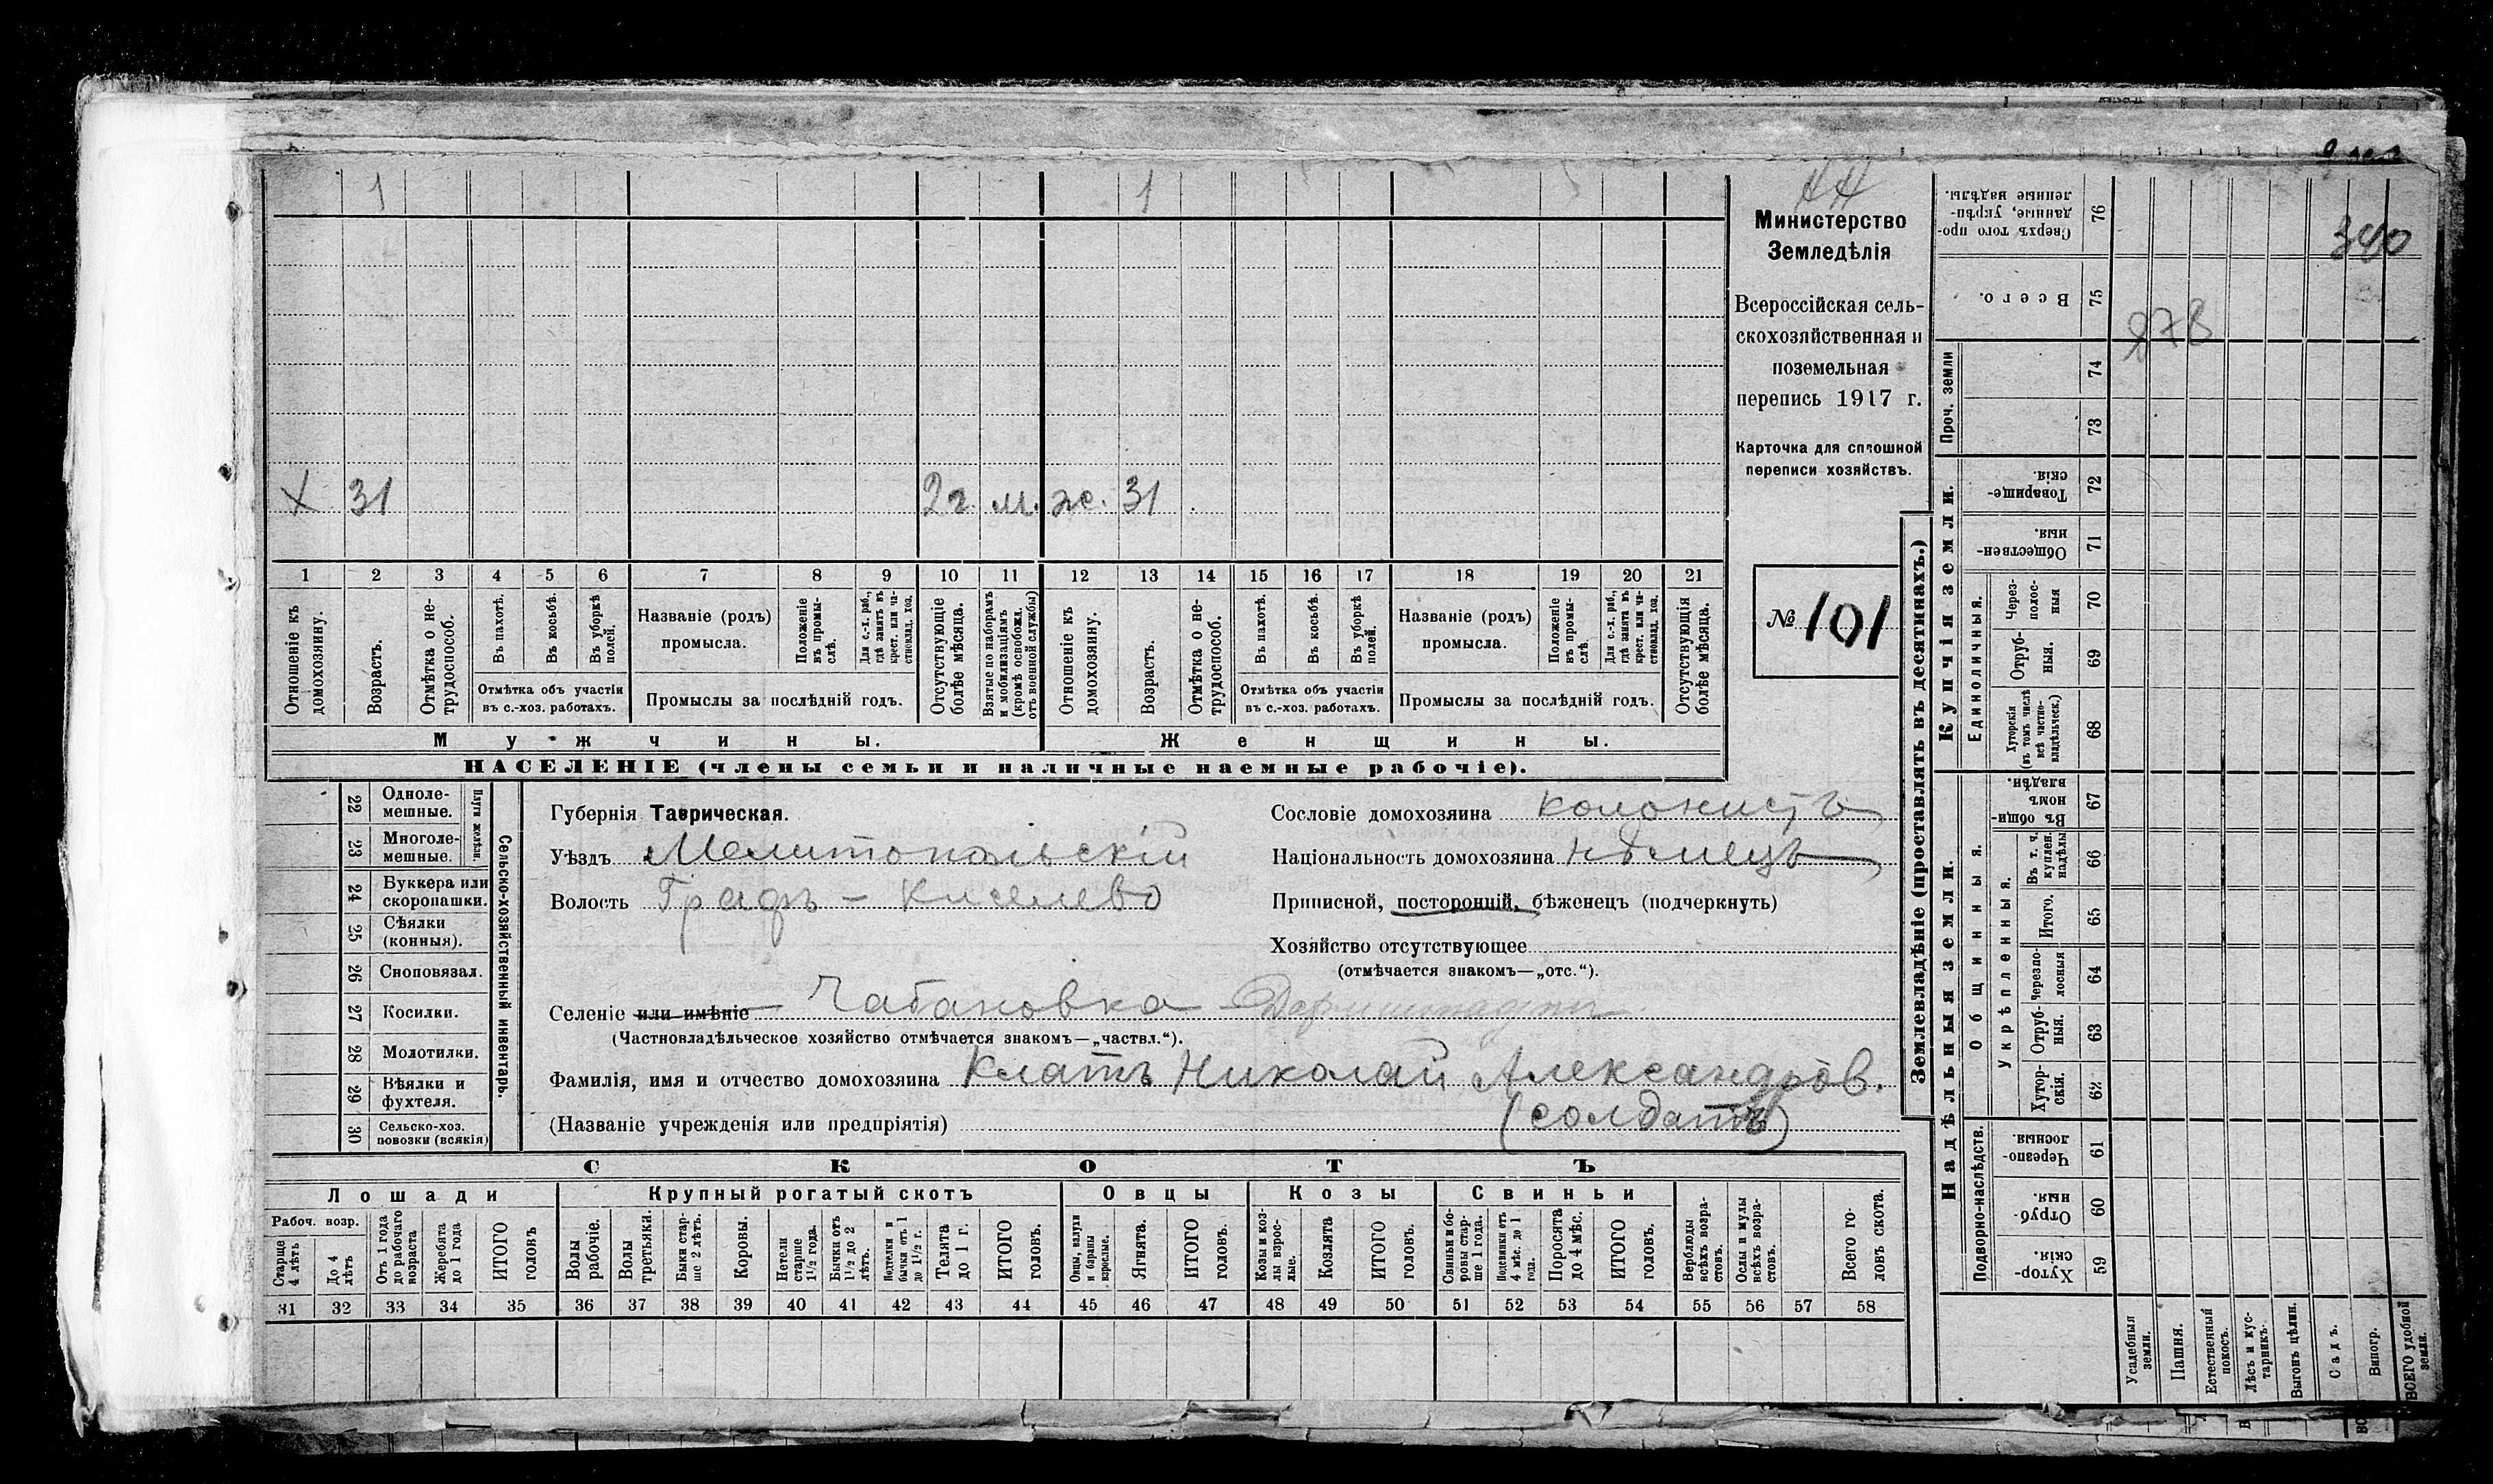 1 1
Х 31 2 г. м. ж. 31
1 2 3 4 5 6 7 8 9 10 11 12 13 14 15 16 17 18 19 20 21
Отношеніе къ домохозяину.
Возрастъ.
Отмѣтка о нетрудоспособ.
Въ пахотѣ.
Въ косьбѣ.
Въ уборкѣ полей.
Отмѣтка объ участіи
въ с.-хоз. работахъ.
Названіе (родъ)
промысла.
Положеніе въ промыслѣ.
Для с.-х. раб., гдѣ занятъ въ крест. или частновлад. хоз.
Промыслы за послѣдній годъ.
Отсутствующіе болѣе мѣсяца.
Взятые по наборамъ и мобилизаціямъ (кромѣ освобожд. отъ военной службы)
Отношеніе къ домохозяину.
Возрастъ.
Отмѣтка о нетрудоспособ.
Въ пахотѣ.
Въ косьбѣ.
Въ уборкѣ полей.
Отмѣтка объ участіи
въ с.-хоз. работахъ.
Названіе (родъ)
промысла.
Положеніе въ промыслѣ.
Для с.-х. раб., гдѣ занята въ крест. или частновлад. хоз.
Промыслы за послѣдній годъ.
Отсутствующія болѣе мѣсяца.
Мужчины. Женщины.
НАСЕЛЕНІЕ (члены семьи и наличные наемные рабочіе).
Министерство
Земледѣлія
Всероссійская сель-
скохозяйственная и
поземельная
перепись 1917 г.
Карточка для сплошной
переписи хозяйствъ.
№ 101
22 Одноле-
мешные.
23 Многоле-
мешные.
Плуги желѣзн.
24 Буккера или
скоропашки.
25 Сѣялки
(конныя).
26 Сноповязал.
27 Косилки.
28 Молотилки.
29 Вѣялки и
фухтеля.
30 Сельско-хоз.
повозки (всякія)
Сельско-хозяйственный инвентарь.
Губернія Таврическая.
Уѣздъ Мелитопольскій
Волость Графъ - Киселево
Селеніе или имѣніе Чабановка Дармштадтъ
(Частновладѣльческое хозяйство отмѣчается знакомъ—„частвл.“).
Фамилія, имя и отчество домохозяина Клатъ Николай Александров.
(Названіе учрежденія или предпріятія) (солдатъ)
Сословіе домохозяина колонистъ
Національность домохозяина нѣмецъ
Приписной, посторонній, бѣженецъ (подчеркнуть)
Хозяйство отсутствующее
(отмѣчается знакомъ—„отс.“).
СКОТЪ
Лошади Крупный рогатый скотъ Овцы Козы Свиньи
Рабоч. возр.
Старше 4 лѣтъ
До 4 лѣтъ
Отъ 1 года до рабочаго возраста
Жеребята до 1 года
ИТОГО головъ
Волы рабочіе.
Волы третьяки.
Быки старше 2 лѣтъ.
Коровы.
Нетели старше 1½ года.
Бычки отъ 1½ до 2 лѣтъ.
Подтелки и бычки отъ 1 до 1½ г.
Телята до 1 г.
ИТОГО головъ.
Овцы, валухи и бараны взрослые.
Ягнята.
ИТОГО головъ.
Козы и козлы взрослые.
Козлята
ИТОГО головъ.
Свиньи и боровы старше 1 года.
Подсвинки отъ 4 мѣс. до 1 года.
Поросята до 4 мѣс.
ИТОГО головъ.
Верблюды всѣхъ возрастовъ.
Ослы и мулы всѣхъ возрастовъ.
Всего головъ скота.
31 32 33 34 35 36 37 38 39 40 41 42 43 44 45 46 47 48 49 50 51 52 53 54 55 56 57 58
Землевладѣніе (проставлять въ десятинахъ.)
Надѣльныя земли.
Купчія земли.
Проч. земли
Подворно-наслѣдств.
Общинныя.
Укрѣпленныя.
Единоличныя.
Сверхъ того проданные, укрѣпленные надѣлы. 76
Всего. 75
74
73
Товарищескія. 72
Общественныя. 71
Черезполосныя 70
Отрубныя. 69
Хуторскія (въ томъ числѣ всѣ частновладѣльческ.) 68
Въ общинномъ владѣн. 67
Въ т. ч. куплен. надѣлы 66
Итого. 65
Черезполосныя 64
Отрубныя. 63
Хуторскія. 62
Черезполосныя. 61
Отрубныя. 60
Хуторскія 59
Усадебныя земли.
Пашня.
Естественный покосъ.
Лѣсъ и кустарникъ.
Выгонъ цѣлин.
Садъ.
Виногр.
ВСЕГО удобной земли.
878
340